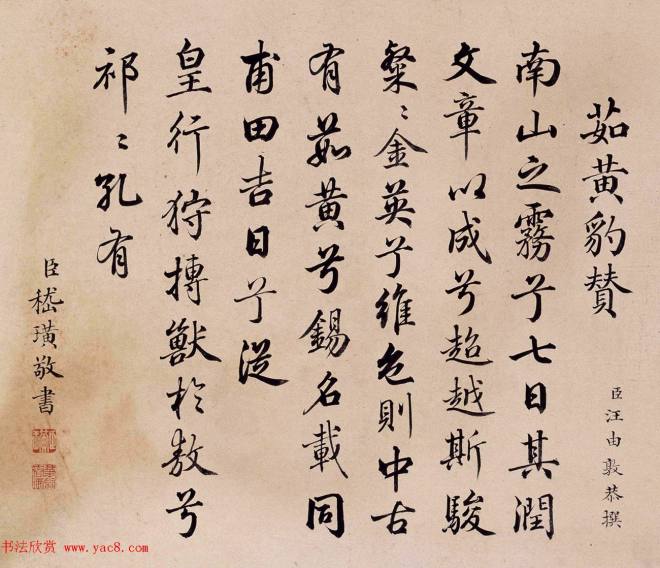 茹黄豹赞
臣汪由敦恭撰
南山之霧兮七日其潤
文章以成兮超越斯駿
粲〻金英兮維色則中古
有茹黄兮錫名載同
甫田吉日兮從
皇行狩摶獸於敖兮
祁〻孔有
臣嵇璜敬書
书法欣赏 www.yac8.com